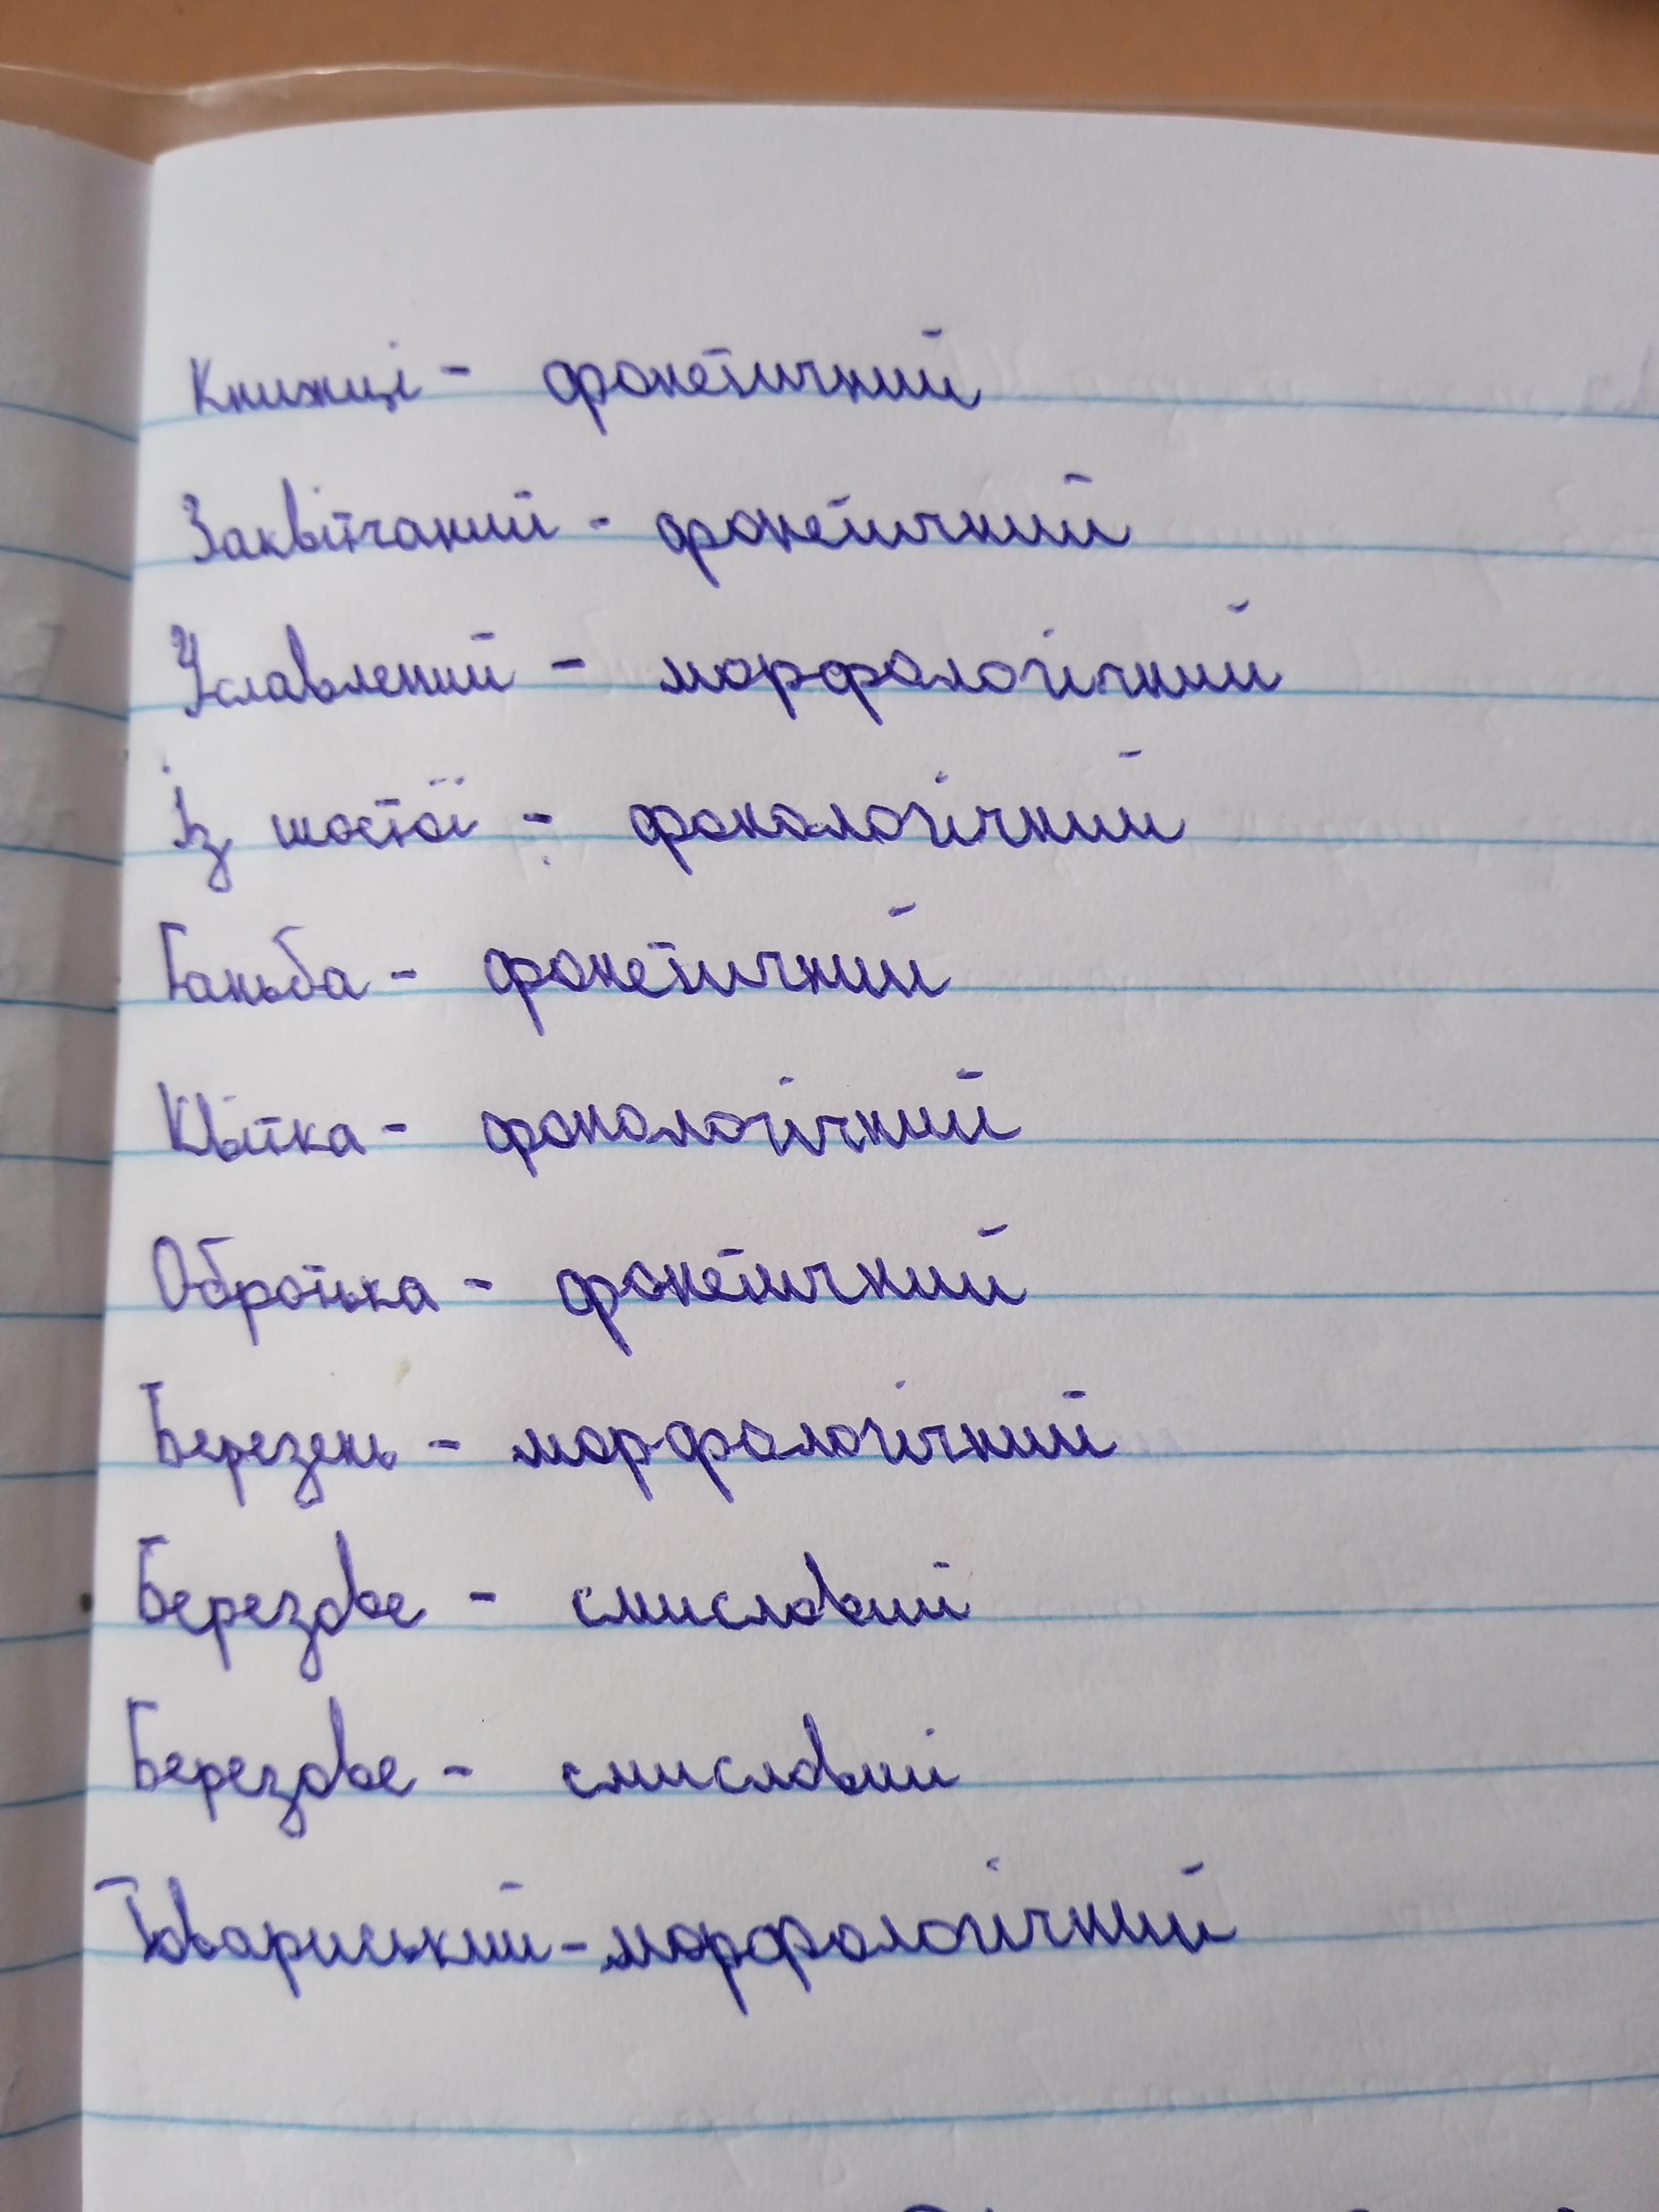 Книжці - фонетичний
Заквітчаний - фонетичний
Уславлений - морфологічний
Із шостої - фонологічний
Ганьба - фонетичний
Квітка - фонологічний
Обротька - фонетичний
Березень - морфологічний
Березове - смисловий
Березове - смисловий
Товариський - морфологічний